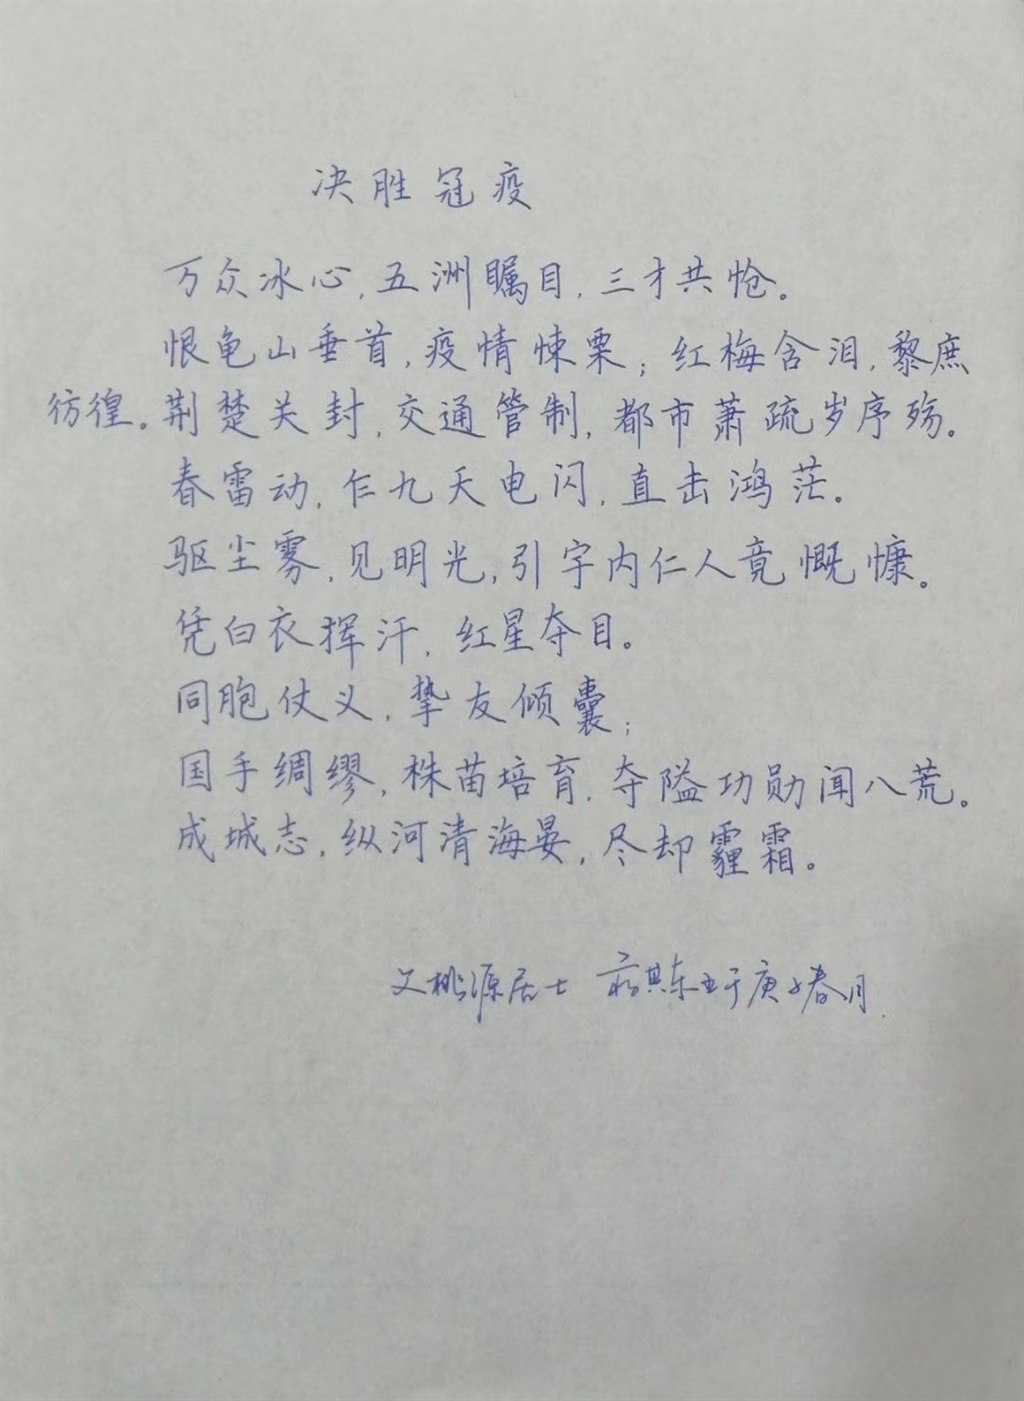 决胜冠疫
万众冰心,五洲瞩目,三才共怆。
恨龟山垂首,疫情悚栗;红梅含泪,黎庶
彷徨。荆楚关封,交通管制,都市萧疏岁序殇。
春雷动,乍九天电闪,直击鸿茫。
驱尘雾,见明光,引宇内仁人竞慨慷。
凭白衣挥汗,红星夺目。
同胞仗义,挚友倾囊;
国手绸缪,株苗培育,夺隘功勋闻八荒。
成城志,纵河清海晏,尽却霾霜。
文桃源居士 于庚子春月